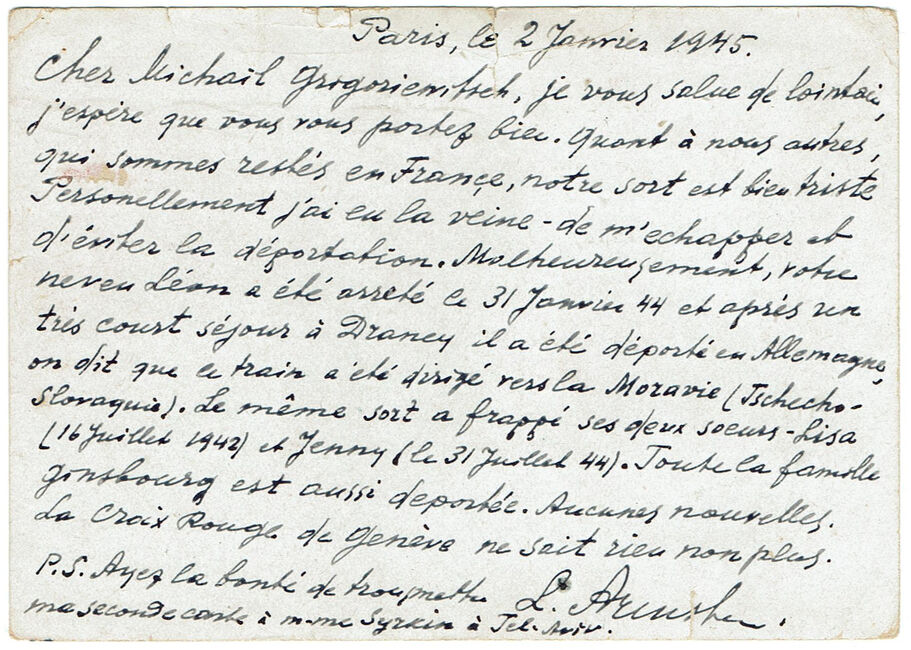 Paris, le 2 Janvier 1945.
Cher Michail Grigoriewitsch, je vous salue de lointain,
j'espère que vous vous portez bien. Quant à nous autres,
qui sommes restés en France, notre sort est bien triste
Personellement j'ai eu la veine - de m'echapper et
d'éviter la déportation. Malheureusement, votre
neveu Léon a été arreté le 31 Janvier 44 et après un
très court séjour à Drancy il a été déporté en Allemagne,
on dit que le train a été dirigé vers la Moravie (Tschecho-
Slovaquie). Le même sort a frappé ses deux soeurs - Lisa
(16 Juillet 1942) et Jenny (le 31 Juillet 44). Toute la famille
Ginsbourg est aussi deportée. Aucunes nouvelles.
La Croix Rouge de Genève ne sait rien non plus.
P.S. Ayez la bonté de
L.
ma seconde carte à m-me Syrkin à Tel-Aviv.